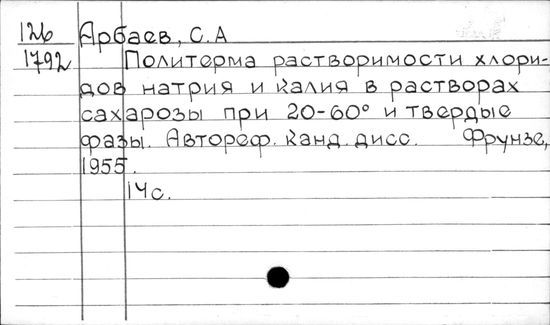 126 Арбаев, С.А
1792 Политерма растворимости хлори-
дов натрия и калия в растворах
сахарозы при 20-60° и твердые
фазы. Автореф. Канд. дисс. Фрунзе,
1955.
14с.